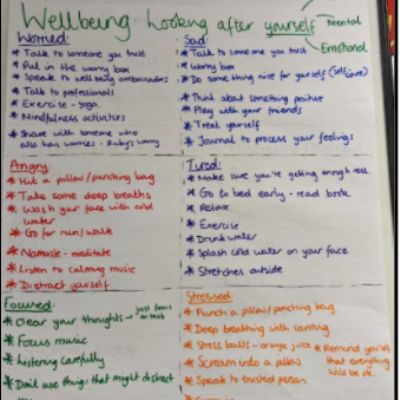 Wellbeing: Looking after yourself
Mental
Emotional
Worried:
* Talk to someone you trust
* Put in the worry box
* Speak to well being ambassadors
* Talk to professionals
* Exercise - yoga
* Mindfulness activities
* Share with someone who
also has worries - Ruby's worry
Sad:
* Talk to some one you trust
* Worry box
* Do some thing nice for yourself (self care)
* Think about something positive
* Play with your friends
* Treat yourself
* Journal to process your feelings
Angry:
* Hit a pillow/punching bag
* Take some deep breaths
* Wash your face with cold
water
* Go for run/walk
* Namaste - meditate
* Listen to calming music
* Distract yourself
Tired:
* Make sure you're getting enough rest
* Go to bed early - read book
* Relax
* Exercise
* Drink water
* Splash cold water on your face
* Stretches outside
Focused:
* Clear your thoughts → just focus
on task
* Focus music
* Listening carefully
* Don't use things that might distract
Stressed:
* Punch a pillow/punching bag
* Deep breathing with counting
* Stress balls - orange juice
* Scream into a pillow
* Speak to trusted person
* Remind yourself
that everything
will be ok.